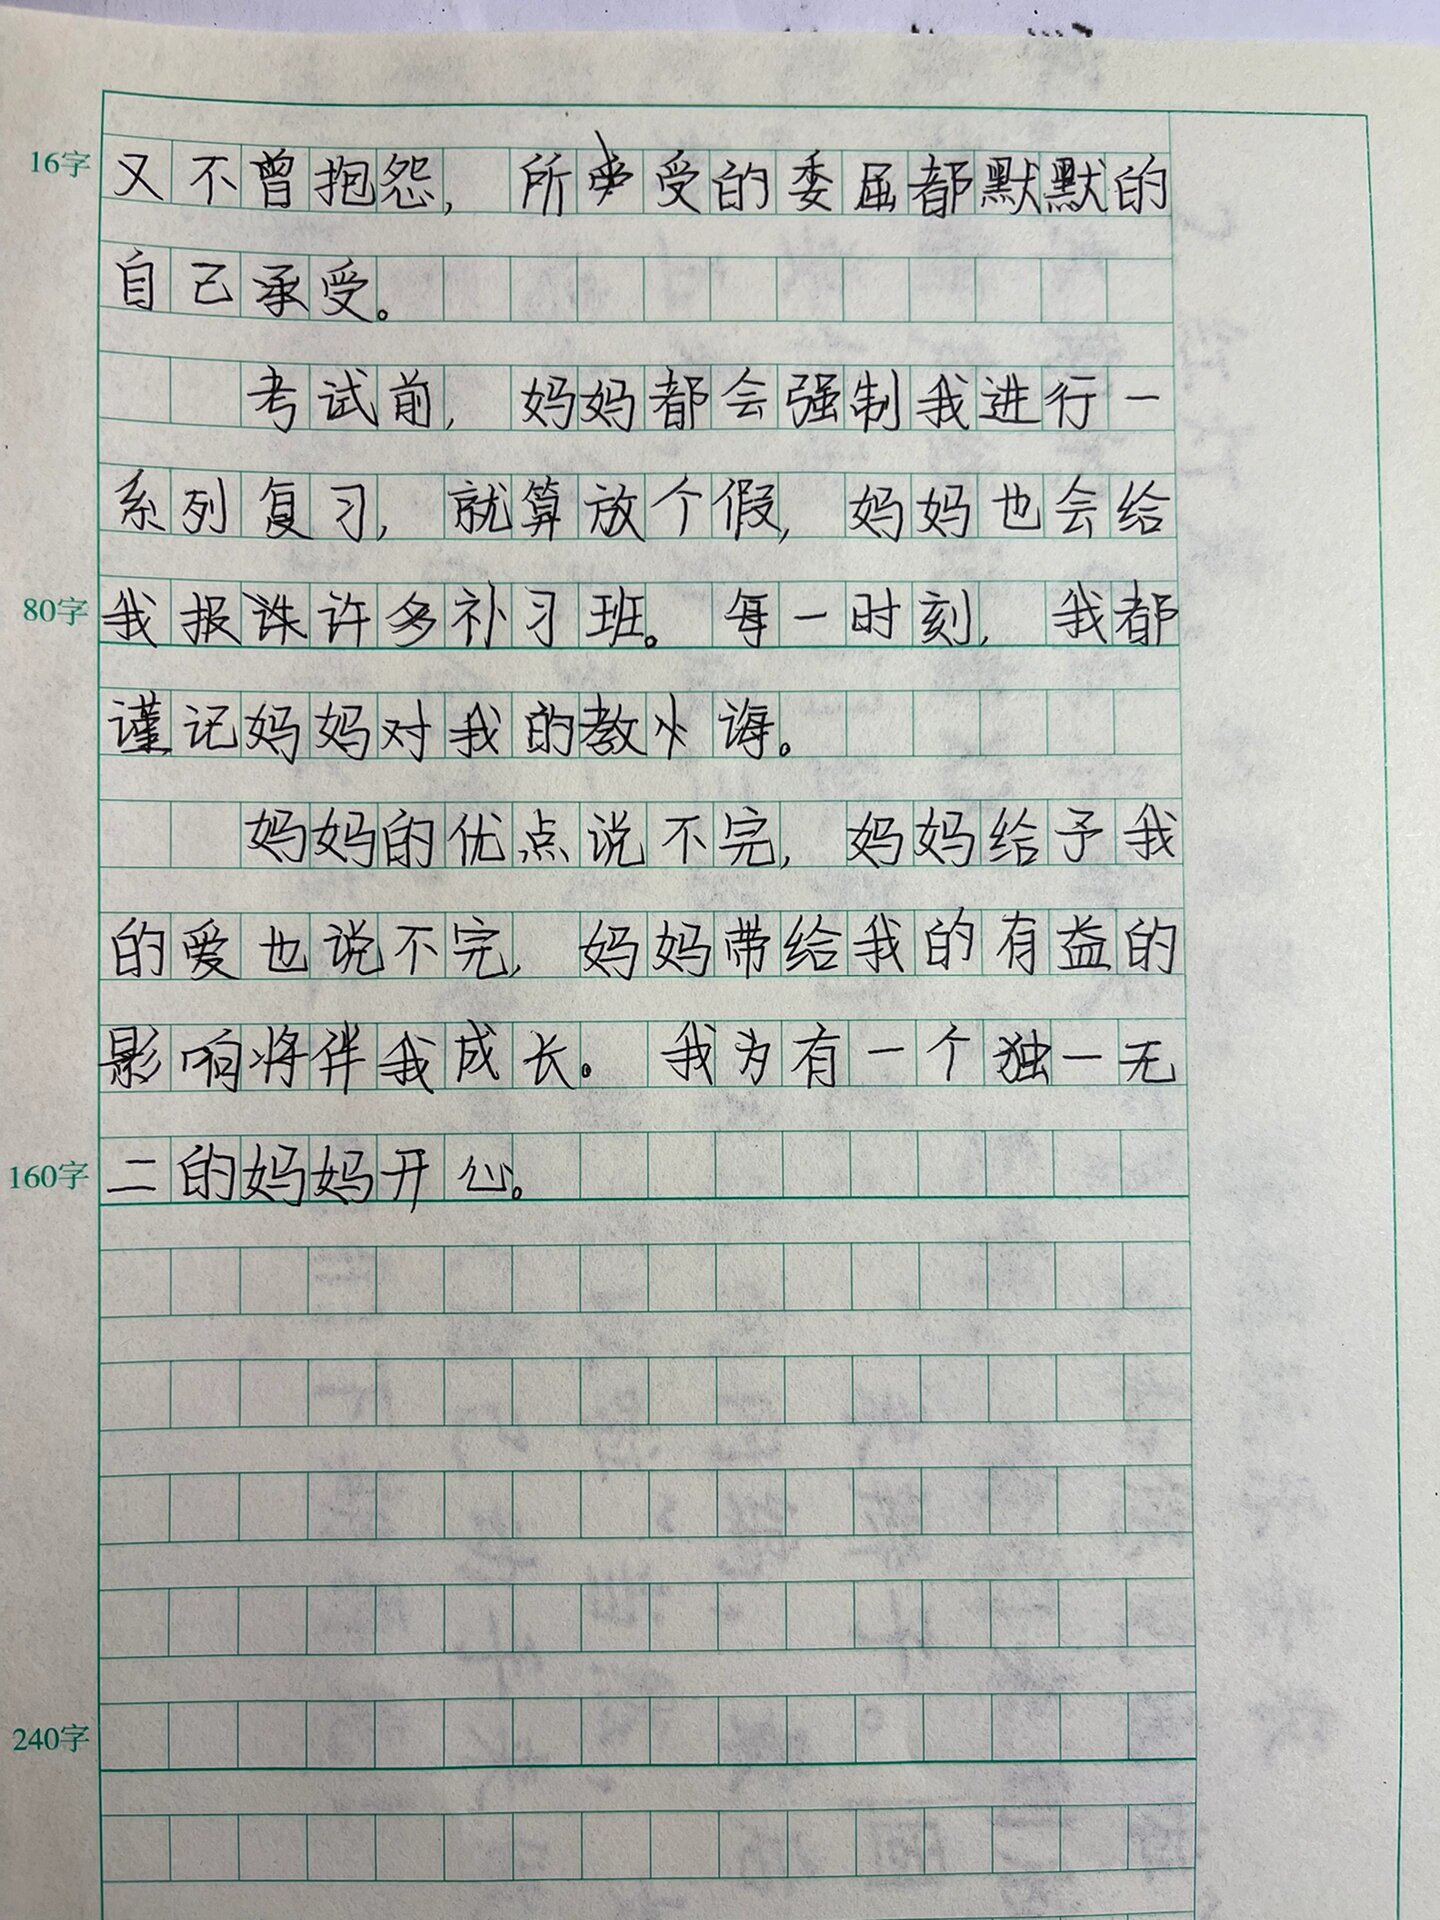 16字 又不曾抱怨，所受的委屈都默默的
自己承受。
考试前，妈妈都会强制我进行一
系列复习，就算放个假，妈妈也会给
80字 我报许多补习班。每一时刻，我都
谨记妈妈对我的教诲。
妈妈的优点说不完，妈妈给予我
的爱也说不完，妈妈带给我的有益的
影响将伴我成长。我为有一个独一无
160字 二的妈妈开心。
240字